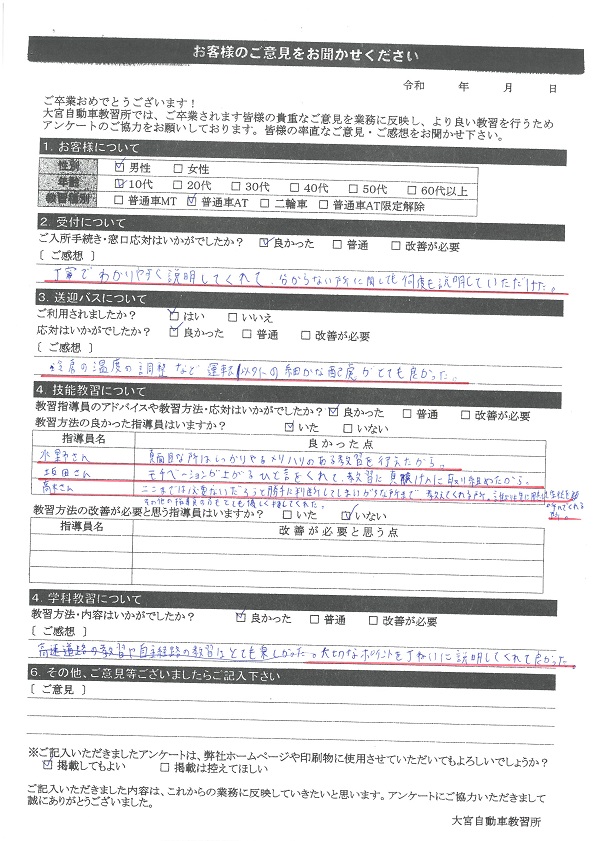 お客様のご意見をお聞かせください
令和 年 月 日
ご卒業おめでとうございます！
大宮自動車教習所では、ご卒業されます皆様の貴重なご意見を業務に反映し、より良い教習を行うため
アンケートのご協力をお願いしております。皆様の率直なご意見・ご感想をお聞かせ下さい。
1. お客様について
性別 ☑男性 □女性
年齢 ☑10代 □20代 □30代 □40代 □50代 □60代以上
教習種別 □普通車MT ☑普通車AT □二輪車 □普通車AT限定解除
2. 受付について
ご入所手続き・窓口応対はいかがでしたか？ ☑良かった □普通 □改善が必要
［ご感想］
丁寧でわかりやすく説明してくれて、分からない所に関しても何度も説明していただけた。
3. 送迎バスについて
ご利用されましたか？ ☑はい □いいえ
応対はいかがでしたか？ ☑良かった □普通 □改善が必要
［ご感想］
冷房の温度の調整など運転以外の細かな配慮がとても良かった。
4. 技能教習について
教習指導員のアドバイスや教習方法・応対はいかがでしたか？ ☑良かった □普通 □改善が必要
教習方法の良かった指導員はいますか？ ☑いた □いない
指導員名 良かった点
水野さん 真面目な所はしっかりやるメリハリのある教習を行えたから。
さん モチベーションが上がるひと言をくれて、教習に真剣に取り組めたから。
さん ここまでは必要ないだろうと勝手に判断してしまいがちな所まで、教えてくれる所。
教習方法の改善が必要と思う指導員はいますか？ □いた ☑いない
指導員名 改善が必要と思う点
4. 学科教習について
教習方法・内容はいかがでしたか？ ☑良かった □普通 □改善が必要
［ご感想］
高速道路の教習や自主経路の教習はとても楽しかった。大切なポイントを丁ねいに説明してくれて良かった
6. その他、ご意見等ございましたらご記入下さい
［ご意見］
※ご記入いただきましたアンケートは、弊社ホームページや印刷物に使用させていただいてもよろしいでしょうか？
☑掲載してもよい □掲載は控えてほしい
ご記入いただきました内容は、これからの業務に反映していきたいと思います。アンケートにご協力いただきまして
誠にありがとうございました。
大宮自動車教習所